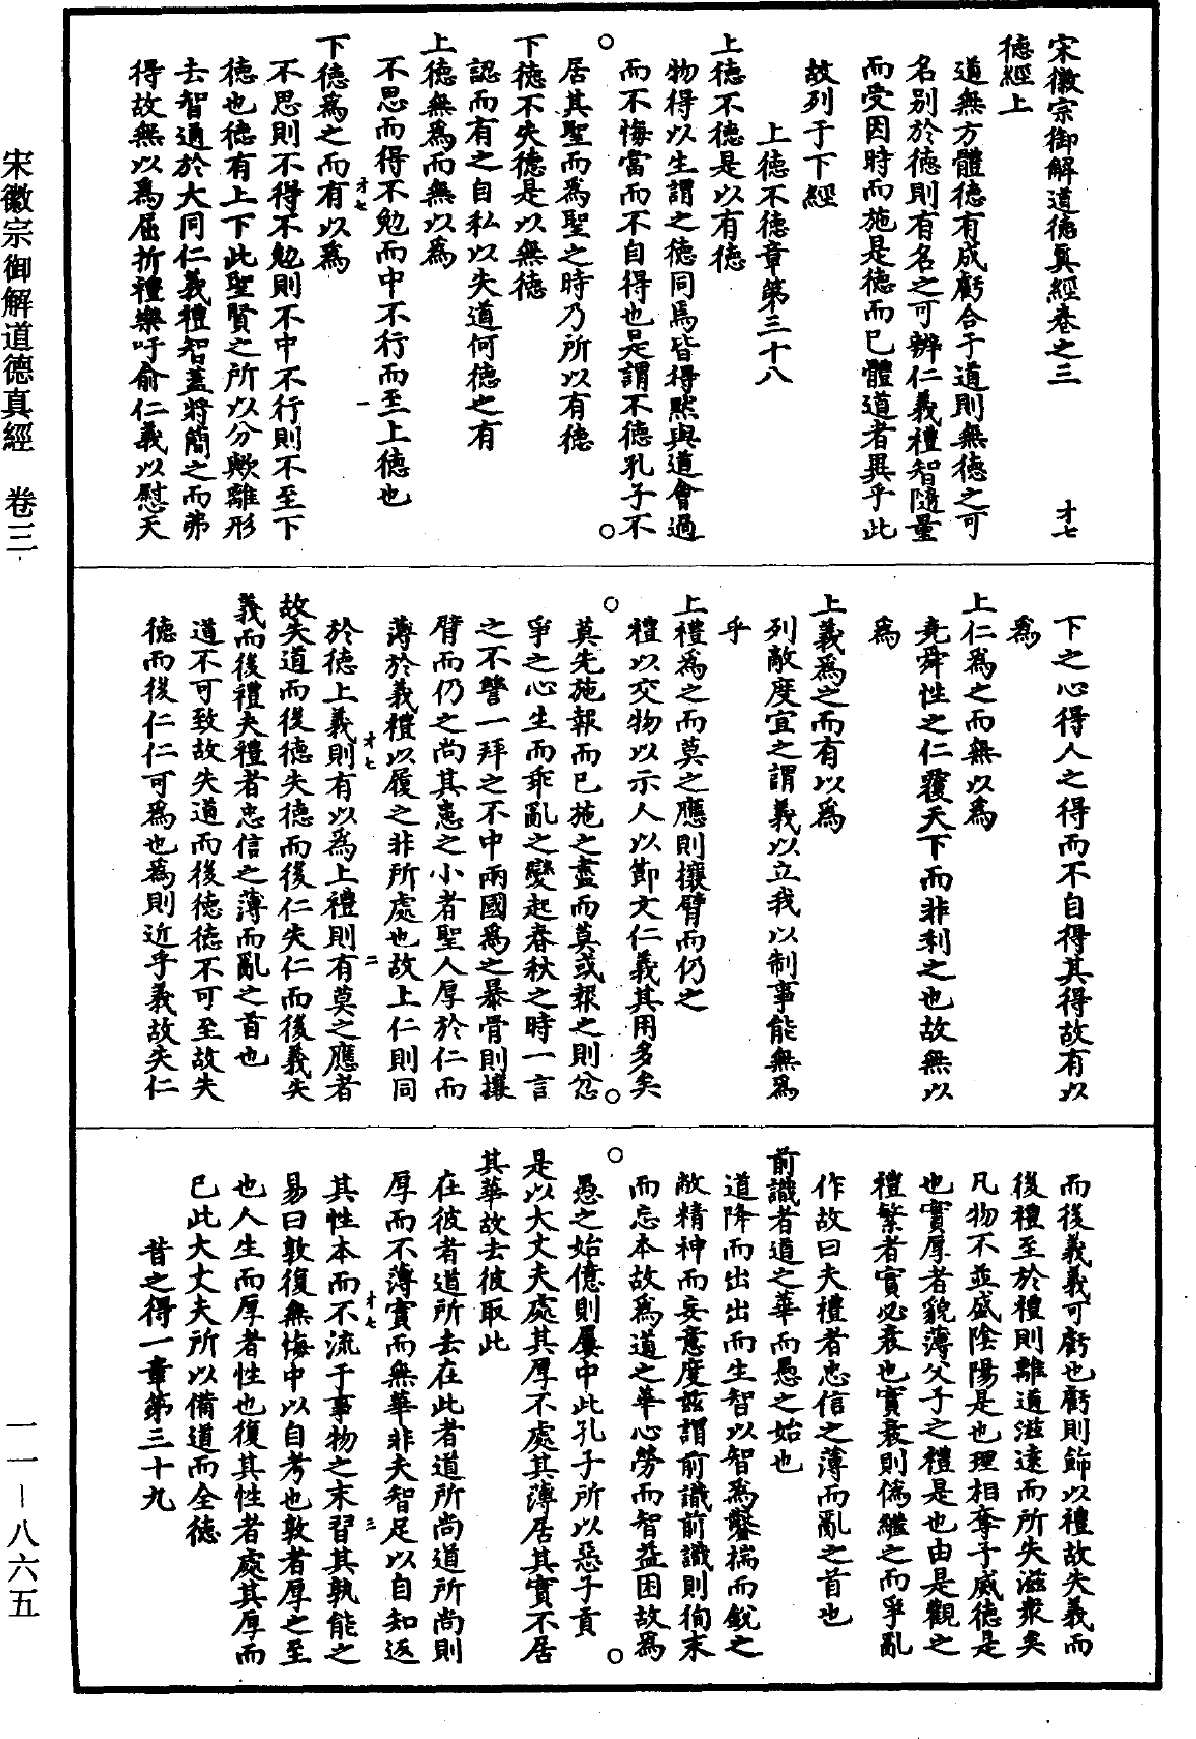 宋徽宗御解道德真經卷之三
才七
德經上
道無方體德有成虧合于道則無德之可
名別於德則有名之可辨仁義禮智隨量
而受因時而施是德而已體道者異乎此
故列于下經
上德不德章第三十八
上德不德是以有德
物得以生謂之德同焉皆得默與道會過
而不悔當而不自得也是謂不德孔子不
居其聖而爲聖之時乃所以有德
下德不失德是以無德
認而有之自私以失道何德之有
上德無爲而無以爲
不思而得不勉而中不行而至上德也
才七
一
下德爲之而有以爲
不思則不得不勉則不中不行則不至下
德也德有上下此聖賢之所以分歟離形
去智通於大同仁義禮智蓋將簡之而弗
得故無以爲屈折禮樂吁俞仁義以慰天
下之心得人之得而不自得其得故有以
爲
上仁爲之而無以爲
堯舜性之仁覆天下而非利之也故無以
爲
上義爲之而有以爲
列敵度宜之謂義以立我以制事能無爲
乎
上禮爲之而莫之應則攘臂而仍之
禮以交物以示人以節文仁義其用多矣
莫先施報而已施之盡而莫或報之則忿
爭之心生而乖亂之變起春秋之時一言
之不讐一拜之不中兩國爲之暴骨則攘
臂而仍之尚其患之小者聖人厚於仁而
薄於義禮以履之非所處也故上仁則同
才七
二
於德上義則有以爲上禮則有莫之應者
故失道而後德失德而後仁失仁而後義失
義而後禮夫禮者忠信之薄而亂之首也
道不可致故失道而後德德不可至故失
德而後仁仁可爲也爲則近乎義故失仁
而後義義可虧也虧則飾以禮故失義而
後禮至於禮則離道滋遠而所失滋衆矣
凡物不並盛陰陽是也理相奪予威德是
也實厚者貌薄父子之禮是也由是觀之
禮繁者實必衰也實衰則僞繼之而爭亂
作故曰夫禮者忠信之薄而亂之首也
前識者道之華而愚之始也
道降而出出而生智以智爲鑿揣而銳之
敝精神而妄意度茲謂前識前識則徇末
而忘本故爲道之華心勞而智益困故爲
愚之始億則屢中此孔子所以惡子貢
是以大丈夫處其厚不處其薄居其實不居
其華故去彼取此
在彼者道所去在此者道所尚道所尚則
厚而不薄實而無華非夫智足以自知返
才七
三
其性本而不流于事物之末習其孰能之
易曰敦復無悔中以自考也敦者厚之至
也人生而厚者性也復其性者處其厚而
已此大丈夫所以備道而全德
昔之得一章第三十九
宋徽宗御解道德真經　卷三
一一—八六五